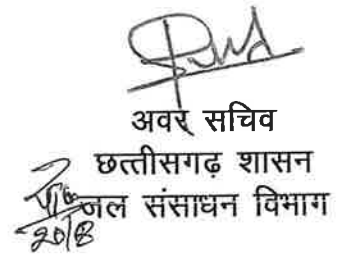 अवर सचिव
छत्तीसगढ़ शासन
जल संसाधन विभाग
20/8